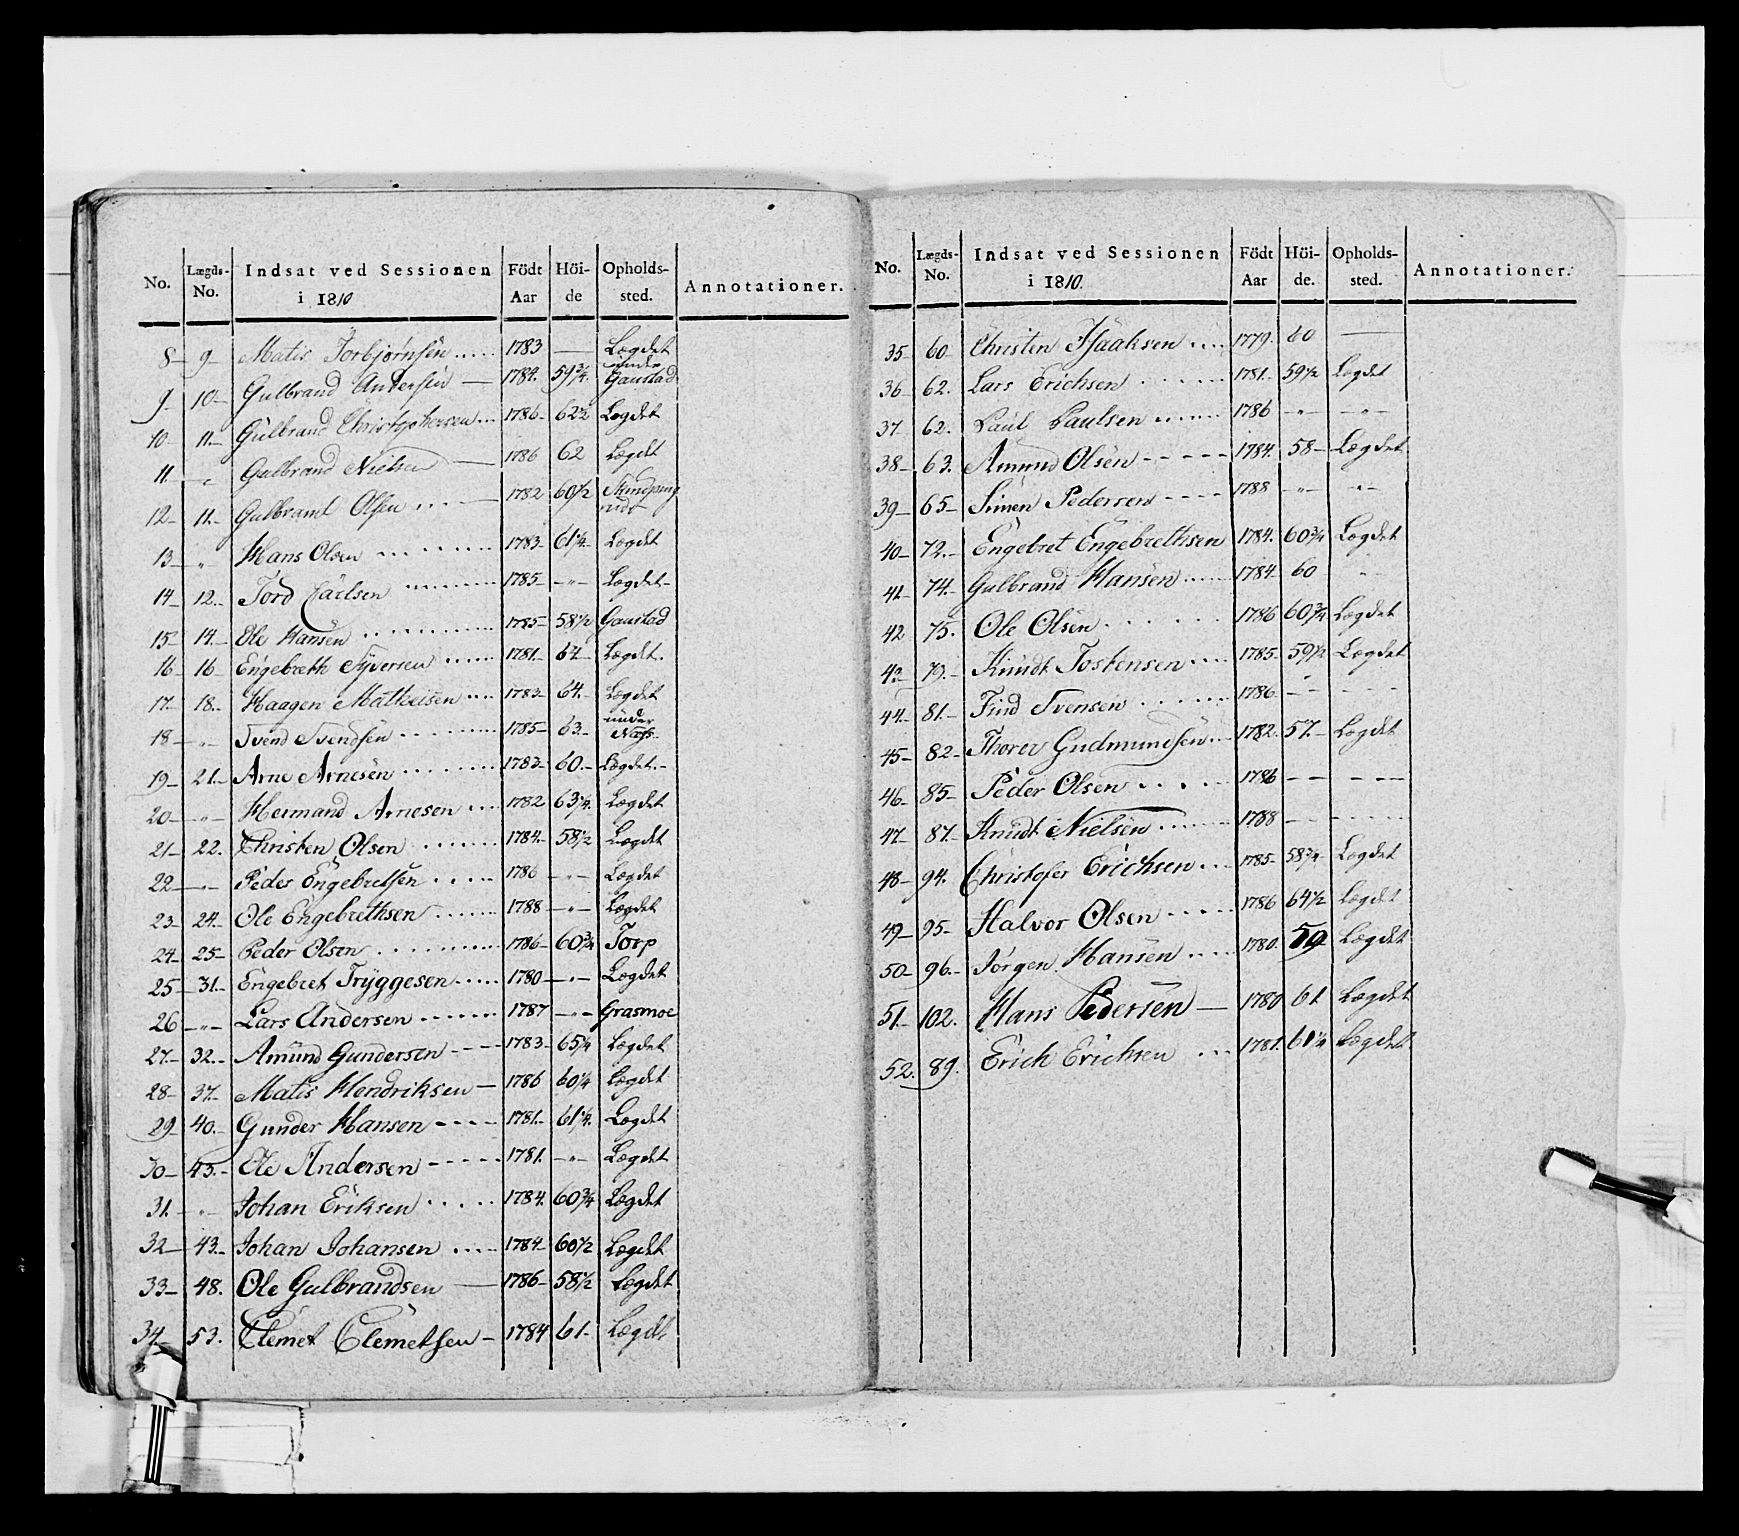 No. Lægds-No. Indsat ved Sessionen i 1810 Födt Aar Höide Opholdssted. Annotationer.
8 9 Matis Torbjørnsen 1783 — Lægdet
9 10 Gulbrand Andersen — 1784. 59¾. under Gaustad
10 11 Gulbrand Christophersen 1786 62½ Lægdet
11. „ Gulbrand Nielsen — 1786 62 Lægdet
12 11. Gulbrand Olsen 1782 60½
13 „ Hans Olsen 1783 61¼ Lægdet
14 12. Tord Carlsen 1785 —„— Lægdet
15 14 Ole Hansen 1785 58½ Gaustad
16 16 Engebreth Syversen 1781 64 Lægdet.
17. 18. Haagen Mathisen 1783 64. Lægdet
18 —„— Svend Svendsen 1785 63 under Næs
19 21. Arne Arnesen 1783 60. Lægdet.
20 —„— Hermand Arnesen 1782 63¼. Lægdet
21 22. Christen Olsen 1784. 58½ Lægdet
22 —„— Peder Engebretsen 1786 —„— Lægdet
23 24. Ole Engebrethsen 1788 —„— Lægdet
24 25 Peder Olsen 1786 60¾ Torp
25 31. Engebret Tryggesen 1780 —„— Lægdet
26 —„— Lars Andersen 1787 —„— Grasmoe
27. 32. Amund Gundersen 1783 65¼ Lægdet
28 37. Matis Hendriksen — 1786 60¼ Lægdet
29 40. Gunder Hansen 1781. 61¼. Lægdet
30 43. Ole Andersen 1781. —„— Lægdet
31. „ Johan Eriksen 1784. 60¾ Lægdet
32 43. Johan Johansen 1784 60½ Lægdet
33 48. Ole Gulbrandsen — 1786 58½ Lægdet
34 53. Clemet Clemetsen — 1784 61. Lægdet
No. Lægds-No. Indsat ved Sessionen i 1810. Födt Aar Höide. Opholdssted. Annotationer.
35 60 Christen Isaaksen 1779. 60 —
36 62. Lars Erichsen 1781. 59½ Lægdet
37 62. Paul Paulsen 1786 —„— —„—
38 63. Amund Olsen 1784. 58 Lægdet
39 65 Simen Pedersen 1788 —„— —„—
40 72. Engebret Engebrethsen 1784. 60¾ Lægdet
41 74. Gulbrand Hansen 1784 60 „
42 75. Ole Olsen 1786 60¾ Lægdet
43 79. Knudt Tostensen 1785 59½ Lægdet
44 81. Find Svensen 1786. — —
45 82 Thorer Gudmundsen 1782. 57. Lægdet
46 85 Peder Olsen 1786 — —
47. 87. Knudt Nielsen 1788 — —
48 94. Christofer Erichsen 1785 58¾ Lægdet
49 95 Halvor Olsen 1786 64½ Lægdet
50 96. Jörgen Hansen 1780. 59 Lægdet
51. 102. Hans Pedersen — 1780 61 Lægdet
52. 89. Erich Erichsen 1781. 61¼ Lægdet